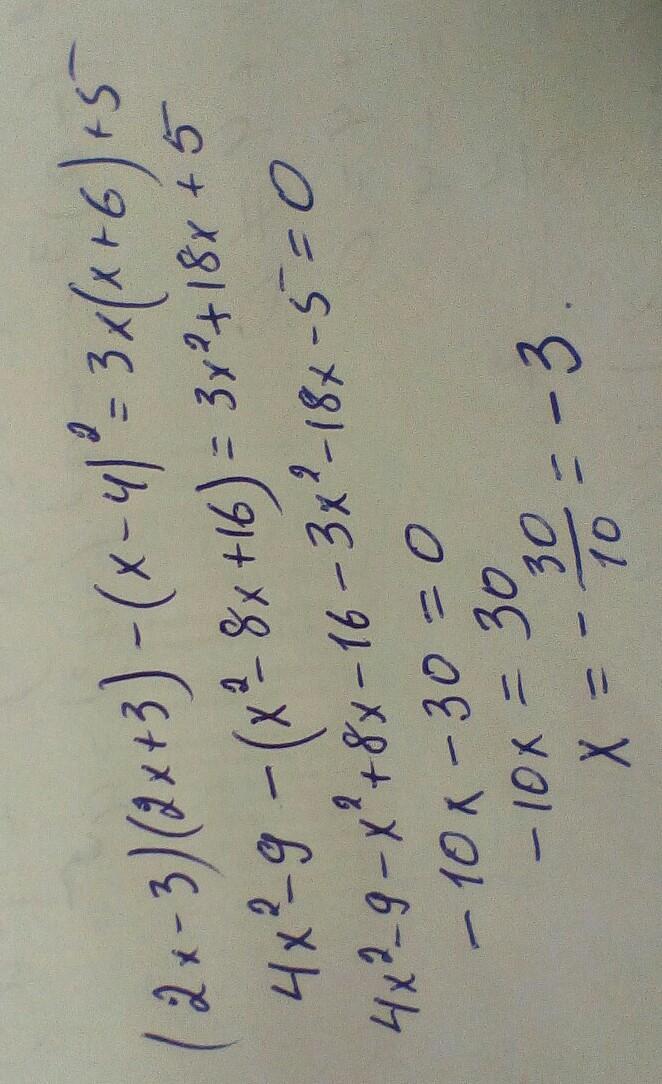 (2x-3)(2x+3)-(x-4)² = 3x(x+6)+5
4x²-9 -(x²-8x+16)=3x²+18x+5
4x²-9-x²+8x-16-3x²-18x-5=0
-10x-30=0
-10x=30
x=-30/10=-3.